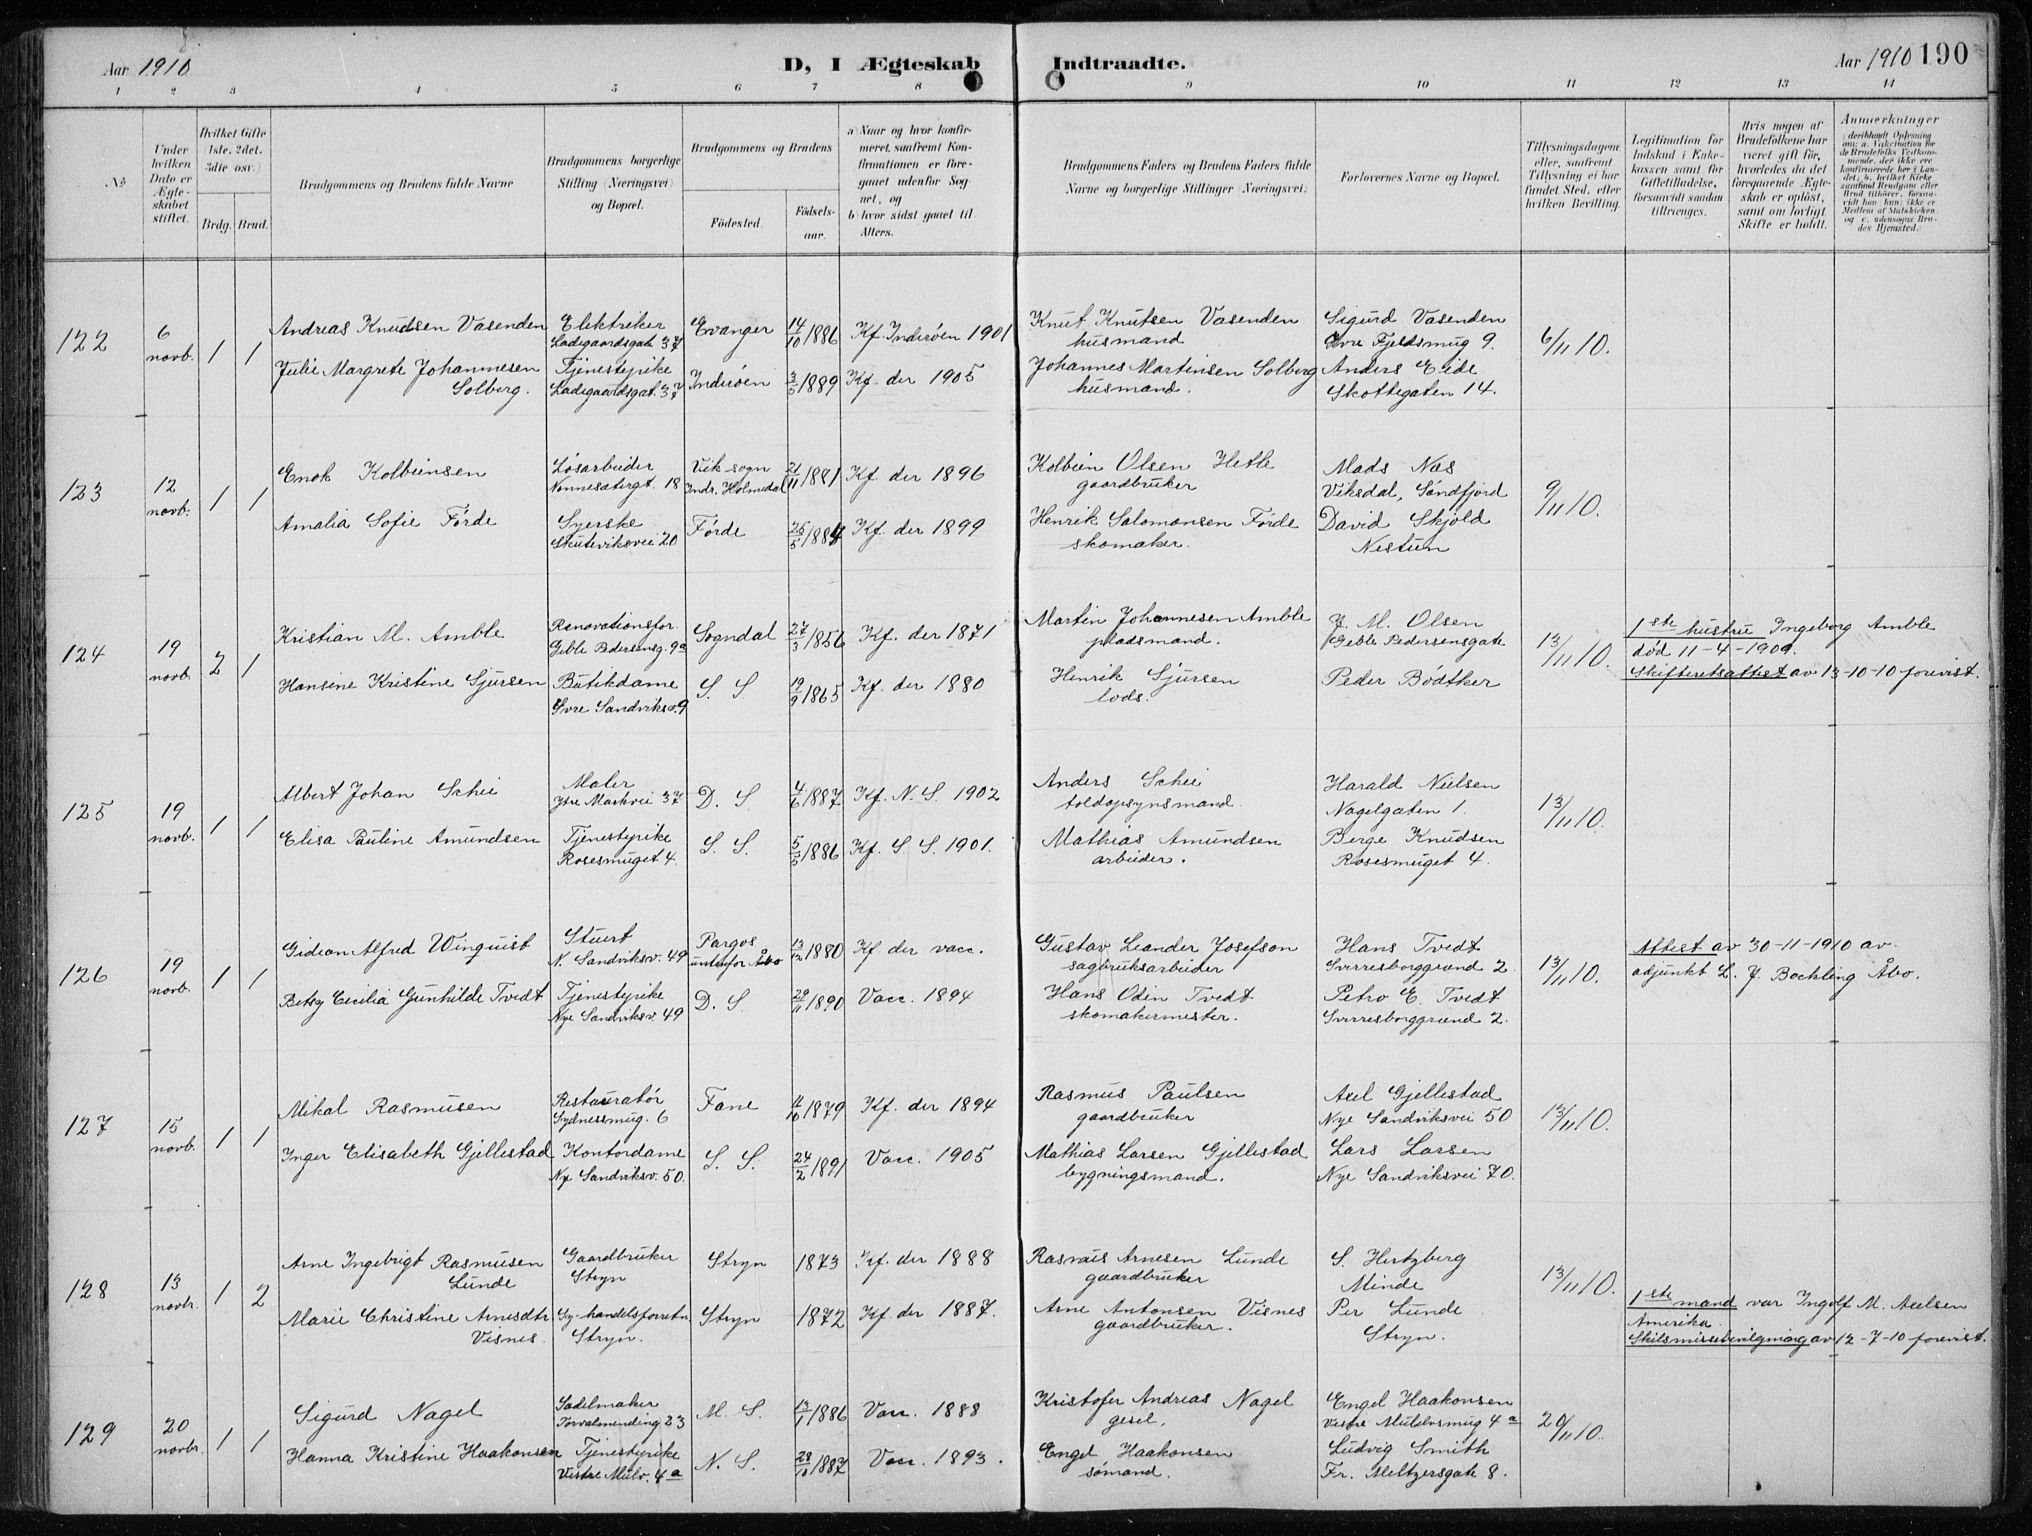 Aar 1910
D, I Ægteskab Indtraadte.
Aar 1910 190
1 2 3 4 5 6 7 8 9 10 11 12 13 14
No.
Under hvilken Dato er Ægteskabet stiftet.
Hvilket Gifte (1ste, 2det, 3die osv.)
Brdg. Brud.
Brudgommens og Brudens fulde Navne
Brudgommens borgerlige Stilling (Næringsvei) og Bopæl.
Brudgommens og Brudens
Födested.
Födselsaar.
a) Naar og hvor konfirmeret, saafremt Konfirmationen er foregaaet udenfor Sognet, og
b) hvor sidst gaaet til Alters.
Brudgommens Faders og Brudens Faders fulde Navne og borgerlige Stillinger (Næringsvei).
Forlovernes Navne og Bopæl.
Tillysningsdagene eller, saafremt Tillysning ei har fundet Sted, efter hvilken Bevilling.
Legitimation for Indskud i Enkekassen samt for Giftetilladelse, forsaavidt saadan tiltrænges.
Hvis nogen af Brudefolkene har været gift för, hvorledes da det foregaaende Ægteskab er oplöst, samt om lovligt Skifte er holdt.
Anmerkninger
(deriblandt Oplysning om: a. Vakcination for de Brudefolks Vedkommende, der ikke ere konfirmerede her i Landet; b. hvilket Kirkesamfund Brudgom eller Brud tilhörer, forsaavidt han (hun) ikke er Medlem af Statskirken, og c. udensogns Brudes Hjemsted.)
122
6 novb.
1 1
Andreas Knudsen Vasenden
Elektriker
Ladegaardsgate 37
Evanger
14/10 1886
Kf. Inderøen 1901
Knut Knutsen Vasenden
husmand
Sigurd Vasenden
Øvre Fjeldsmug 9.
6/11 10.
Julie Margrete Johannesen
Solberg.
Tjenestepike
Ladegaardsgat. 37
Inderøen
3/5 1889
Kf. der 1905
Johannes Martinsen Solberg
husmand.
Anders Eide
Skottegaten 14.
123
12 novb.
1 1
Enok Kolbeinsen
Løsarbeider
Nonnesætergt. 18
Vik sogn
Indr. Holmedal
21/11 1881
Kf. der 1896
Kolbein Olsen Hetle
gaardbruker
Mads Nes
Viksdal, Søndfjord
9/11 10.
Amalia Sofie Førde
Syerske
Skuteviksvei 20
Førde
25/5 1884
Kf. der 1899
Henrik Salomonsen Førde
skomaker.
David Skjold
Nestun
124
19 novb.
2 1
Kristian M. Amble
Renovationsfor.
Geble Pedersensg. 9a
Sogndal
27/3 1856
Kf. der 1871
Martin Johannesen Amble
pladsmand.
J. M. Olsen
Geble Pedersensgate
13/11 10.
1ste hustru Ingeborg Amble
død 11-4-1909.
Skifteretsattest av 13-10-10 forevist.
Hansine Kristine Sjursen
Butikdame
Øvre Sandviksv. 9
S. S.
19/9 1865
Kf. der 1880
Henrik Sjursen
lods.
Peder Bødtker
125
19 novb.
1 1
Albert Johan Schei
Maler
Ytre Markvei 37
D. S.
4/6 1887
Kf. N. S. 1902
Anders Schei
toldopsynsmand.
Harald Nielsen
Nagelgaten 1.
13/11 10.
Elisa Pauline Amundsen
Tjenestepike
Rosesmuget 4.
S. S.
5/5 1886
Kf. S. S. 1901.
Mathias Amundsen
arbeider.
Berge Knudsen
Rosesmuget 4.
126
19 novb.
1 1
Gideon Alfred Winquist
Stuert
N. Sandviksv. 49
Pargas
utenfor Åbo
13/12 1880
Kf. der vacc.
Gustav Leander Josefson
sagbruksarbeider
Hans Tvedt
Sverresborggrend 2
13/11 10.
Attest av 30-11-1910 av
adjunkt L. J. Bochling Åbo.
Betsy Cecilia Gunhilde Tvedt
Tjenestepike
Nye Sandviksv. 49
D. S.
29/11 1890
Vacc. 1894
Hans Odin Tvedt
skomakermester.
Petro E. Tvedt
Sverresborggrend 2.
127
15 novb.
1 1
Mikal Rasmusen
Restauratør
Sydnessmug. 6
Fane
4/10 1879
Kf. der 1894
Rasmus Paulsen
gaardbruker
Axel Gjellestad
Nye Sandviksvei 50
13/11 10.
Inger Elisabeth Gjellestad
Kontordame
Nye Sandviksv. 50.
S. S.
24/2 1891
Vacc. 1905
Mathias Larsen Gjellestad
bygningsmand.
Lars Larsen
Nye Sandviksvei 70.
128
13 novbr.
1 2
Arne Ingebrigt Rasmusen
Lunde
Gaardbruker
Stryn
Stryn
1873
Kf. der 1888
Rasmus Arnesen Lunde
gaardbruker
S. Hertzberg
Minde
13/11 10.
Marie Christine Arnesdtr
Visnes.
Sy-handelsforretn.
Stryn.
Stryn
1872
Kf. der 1887.
Arne Antonsen Visnes
gaardbruker.
Per Lunde
Stryn.
1ste mand var Ingolf M. Axelsen
Amerika.
Skilsmissebevilgning av 12-7-10 forevist.
129
20 novbr.
1 1
Sigurd Nagel
Sadelmaker
Torvalmending 23
M. S.
13/1 1886
Vacc. 1888
Kristofer Andreas Nagel
gesel.
Engel Haakonsen
Vestre Mulelvsmug 4a
20/11 10.
Hanna Kristine Haakonsen
Tjenestepike
Vestre Mulv. 4a
N. S.
28/10 1887
Vacc. 1893.
Engel Haakonsen
sømand.
Ludvig Smith
Fr. Meltzersgate 8.